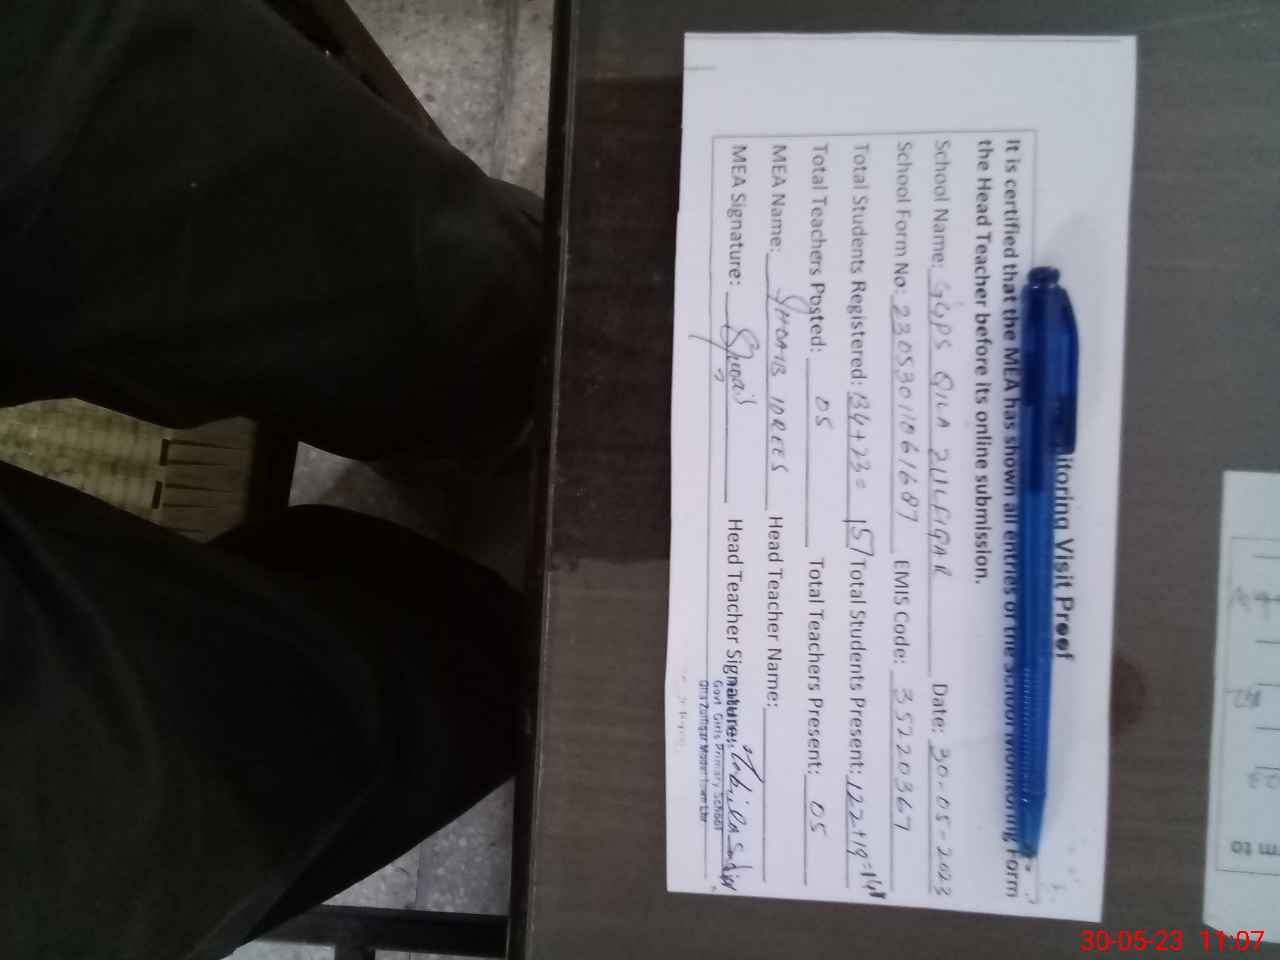 itoring Visit Proof
It is certified that the MEA has shown all entries of the School Monitoring Form
the Head Teacher before its online submission.
School Name: GGPS QILA ZULFIQAR Date: 30-05-2023
School Form No: 2305301061687 EMIS Code: 35220367
Total Students Registered: 134+23= 157 Total Students Present: 122+19=141
Total Teachers Posted: 05 Total Teachers Present: 05
MEA Name: SHOAIB IDREES Head Teacher Name:
MEA Signature: Shoaib Head Teacher Signature:
Govt Girls Primary School
Qila Zulfiqar Model Town Lhr
m to
30-05-23 11:07